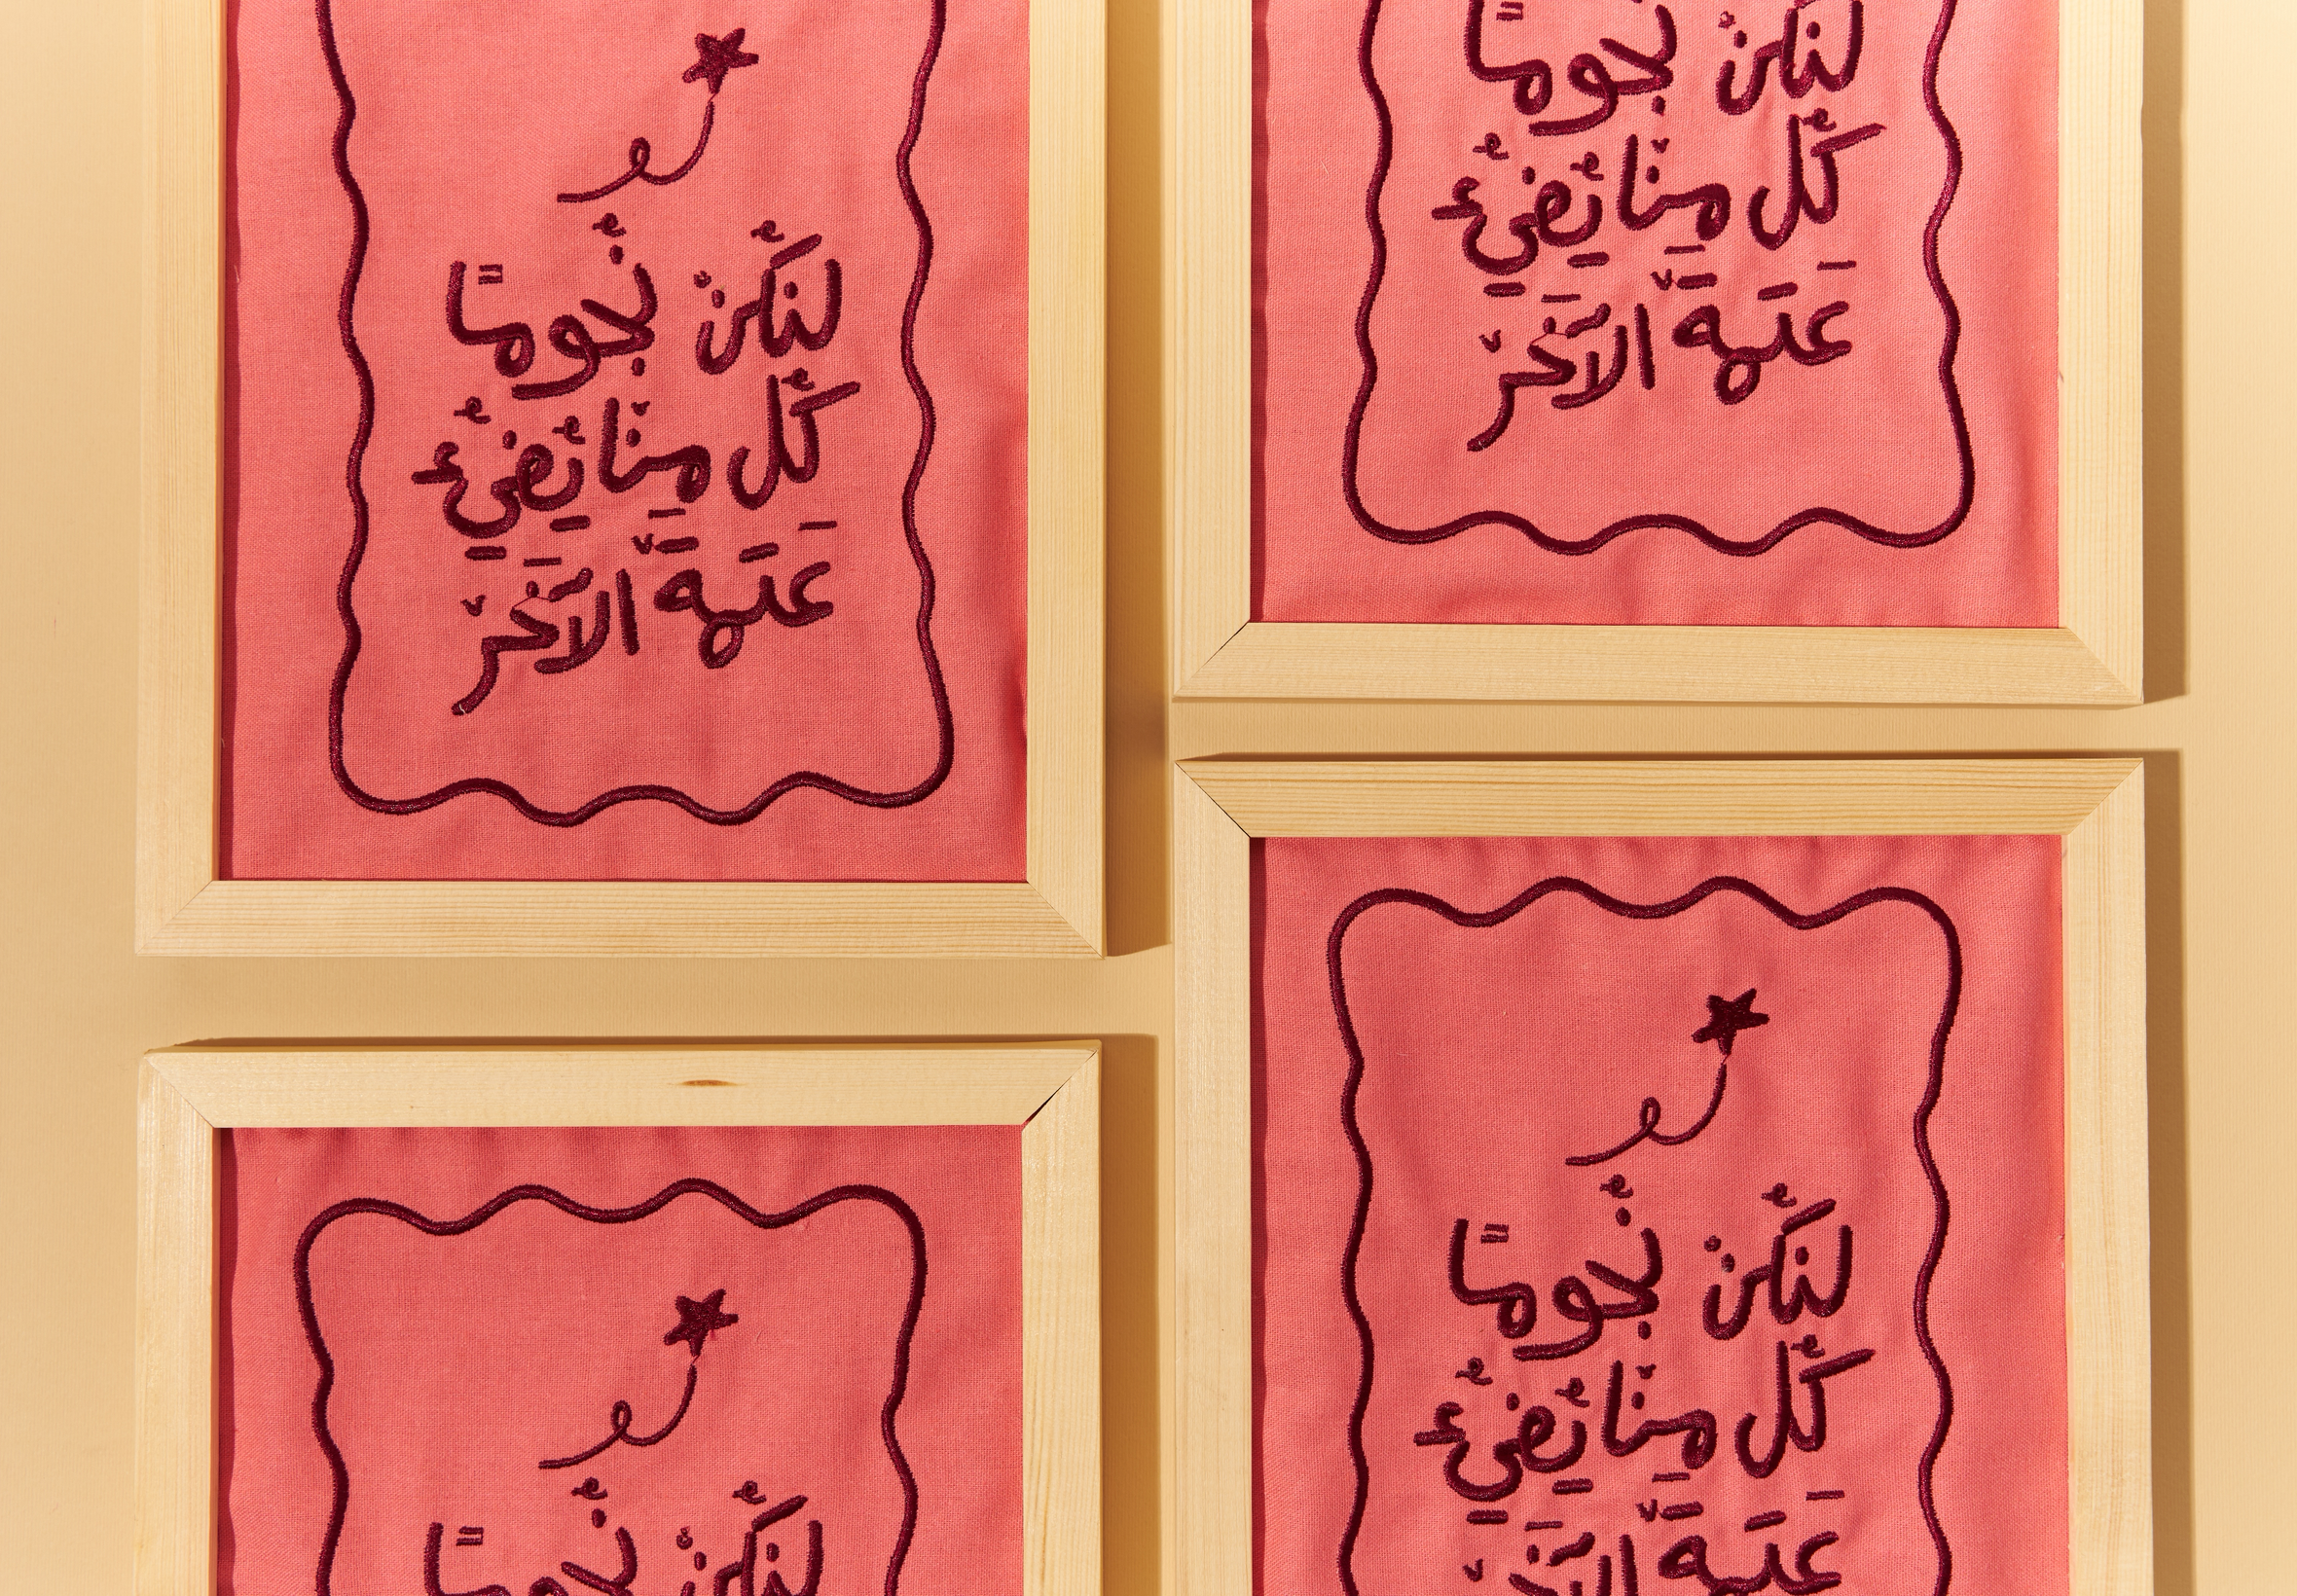 لنكُنْ نُجومًا
كُل مِنّا يُضِيِءُ
عَتمَةَ الآخَرْ
لنكُنْ نُجومًا
كُل مِنّا يُضِيِءُ
عَتمَةَ الآخَرْ
لنكُنْ نُجومًا
لنكُنْ نُجومًا
كُل مِنّا يُضِيِءُ
عَتمَةَ الآخَرْ